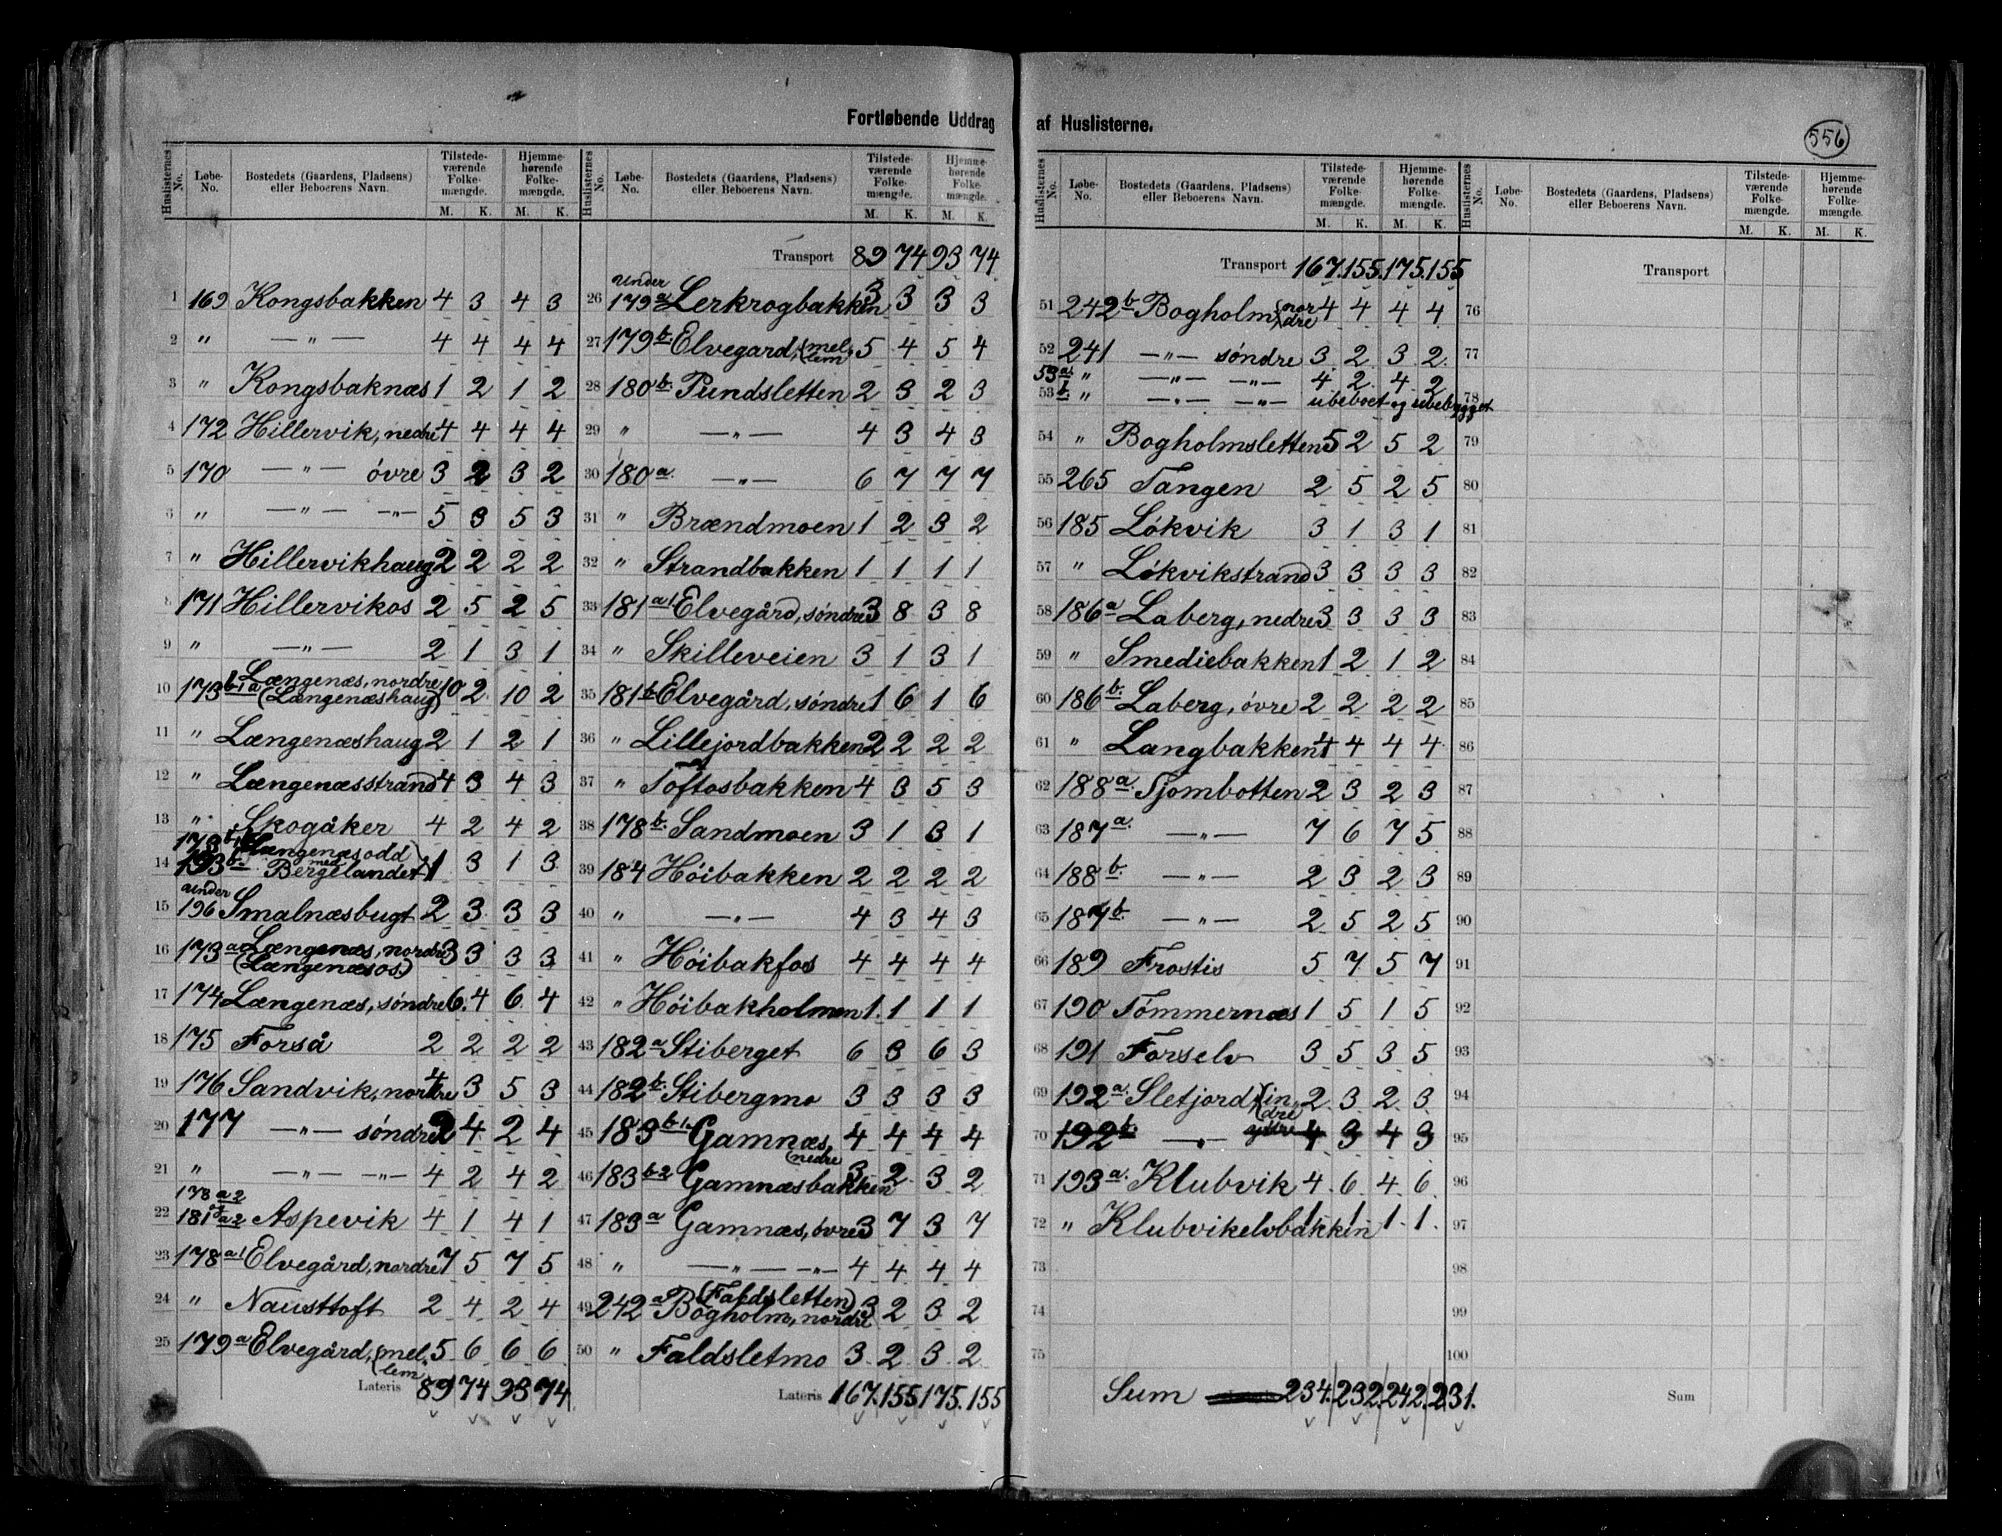 Fortløbende Uddrag af Huslisterne.
556
Huslisternes No. Løbe-No. Bostedets (Gaardens, Pladsens) eller Beboerens Navn. Tilstedeværende Folkemængde. M. K. Hjemmehørende Folkemængde. M. K.
1 169 Kongsbakken 4 3 4 3
2 " —"— 4 4 4 4
3 " Kongsbaknæs 1 2 1 2
4 172 Hillervik, nedre 4 4 4 4
5 170 —"— øvre 3 2 3 2
6 " —"— —"— 5 3 5 3
7 " Hillervikhaug 2 2 2 2
8 171 Hillervikos 2 5 2 5
9 " —"— 2 1 3 1
10 173 b1a Længenæs, nordre (Længenæshaug) 10 2 10 2
11 " Længenæshaug 2 1 2 1
12 " Længenæsstrand 4 3 4 3
13 " Skogåker 4 2 4 2
14 173 193 b. Længenæsodd med Bergelandet 1 3 1 3
15 under 196 Smalnæsbugt 2 3 3 3
16 173 a2 Længenæs, nordre (Længenæsos) 3 3 3 3
17 174 Længenæs, søndre 6 4 6 4
18 175 Forså 2 2 2 2
19 176 Sandvik, nordre 4 3 5 3
20 177 —"— søndre 2 4 2 4
21 " —"— —"— 4 2 4 2
22 178 a2 181 a2 Aspevik 4 1 4 1
23 178 a1 Elvegård, nordre 7 5 7 5
24 " Nausttoft 2 4 2 4
25 179 a Elvegård, (mellem 5 6 6 6
Lateris 89 74 93 74
Huslisternes No. Løbe-No. Bostedets (Gaardens, Pladsens) eller Beboerens Navn. Tilstedeværende Folkemængde. M. K. Hjemmehørende Folkemængde. M. K.
Transport 89 74 93 74
26 under 179 a Lerkrogbakken 3 3 3 3
27 179 b. Elvegard, (mellem 5 4 5 4
28 180 b. Pundsletten 2 3 2 3
29 " —"— 4 3 4 3
30 180 a. —"— 6 7 7 7
31 " Brændmoen 1 2 3 2
32 " Strandbakken 1 1 1 1
33 181 a1 Elvegård, søndre 3 8 3 8
34 " Skilleveien 3 1 3 1
35 181 b. Elvegård, søndre 1 6 1 6
36 " Lillejordbakken 2 2 2 2
37 " Toftosbakken 4 3 5 3
38 178 b. Sandmoen 3 1 3 1
39 184 Høibakken 2 2 2 2
40 " —"— 4 3 4 3
41 " Høibakfos 4 4 4 4
42 " Høibakholmen 1 1 1 1
43 182 a Stiberget 6 3 6 3
44 182 b. Stibergmo 3 3 3 3
45 183 b1. Gamnæs, nedre 4 4 4 4
46 183 b2 Gamnæsbakken 3 2 3 2
47 183 a Gamnæs, øvre 3 7 3 7
48 " —"— —"— 4 4 4 4
49 242 a (Faldsletten) Bogholm, nordre 3 2 3 2
50 " Faldsletmo 3 2 3 2
Lateris 167. 155 175. 155
Huslisternes No. Løbe-No. Bostedets (Gaardens, Pladsens) eller Beboerens Navn. Tilstedeværende Folkemængde. M. K. Hjemmehørende Folkemængde. M. K.
Transport 167. 155. 175. 155
51 242 b Bogholm (nordre 4 4 4 4
52 241 —"— søndre 3 2 3 2
53 a. " —"— —"— 4 2 4 2
53 b. " —"— —"— ubeboet og ubebygget
54 " Bogholmsletten 5 2 5 2
55 265 Tangen 2 5 2 5
56 185 Løkvik 3 1 3 1
57 " Løkvikstrand 3 3 3 3
58 186 a Laberg, nedre 3 3 3 3
59 " Smediebakken 1 2 1 2
60 186 b. Laberg, øvre 2 2 2 2
61 " Langbakken 4 4 4 4
62 188 a. Sjombotten 2 3 2 3
63 187 a. —"— 7 6 7 5
64 188 b. —"— 2 3 2 3
65 187 b. —"— 2 5 2 5
66 189 Frostis 5 7 5 7
67 190 Tømmernæs 1 5 1 5
68 191 Forselv 3 5 3 5
69 192 a. Sletjord (indre 2 3 2 3
70 192 b —"— ydre 4 3 4 3
71 193 a. Klubvik 4 6 4 6
72 " Klubvikelvbakken 1 1 1 1
73
74
75
Sum 234. 232. 242. 231.
Huslisternes No. Løbe-No. Bostedets (Gaardens, Pladsens) eller Beboerens Navn. Tilstedeværende Folkemængde. M. K. Hjemmehørende Folkemængde. M. K.
Transport
76
77
78
79
80
81
82
83
84
85
86
87
88
89
90
91
92
93
94
95
96
97
98
99
100
Sum